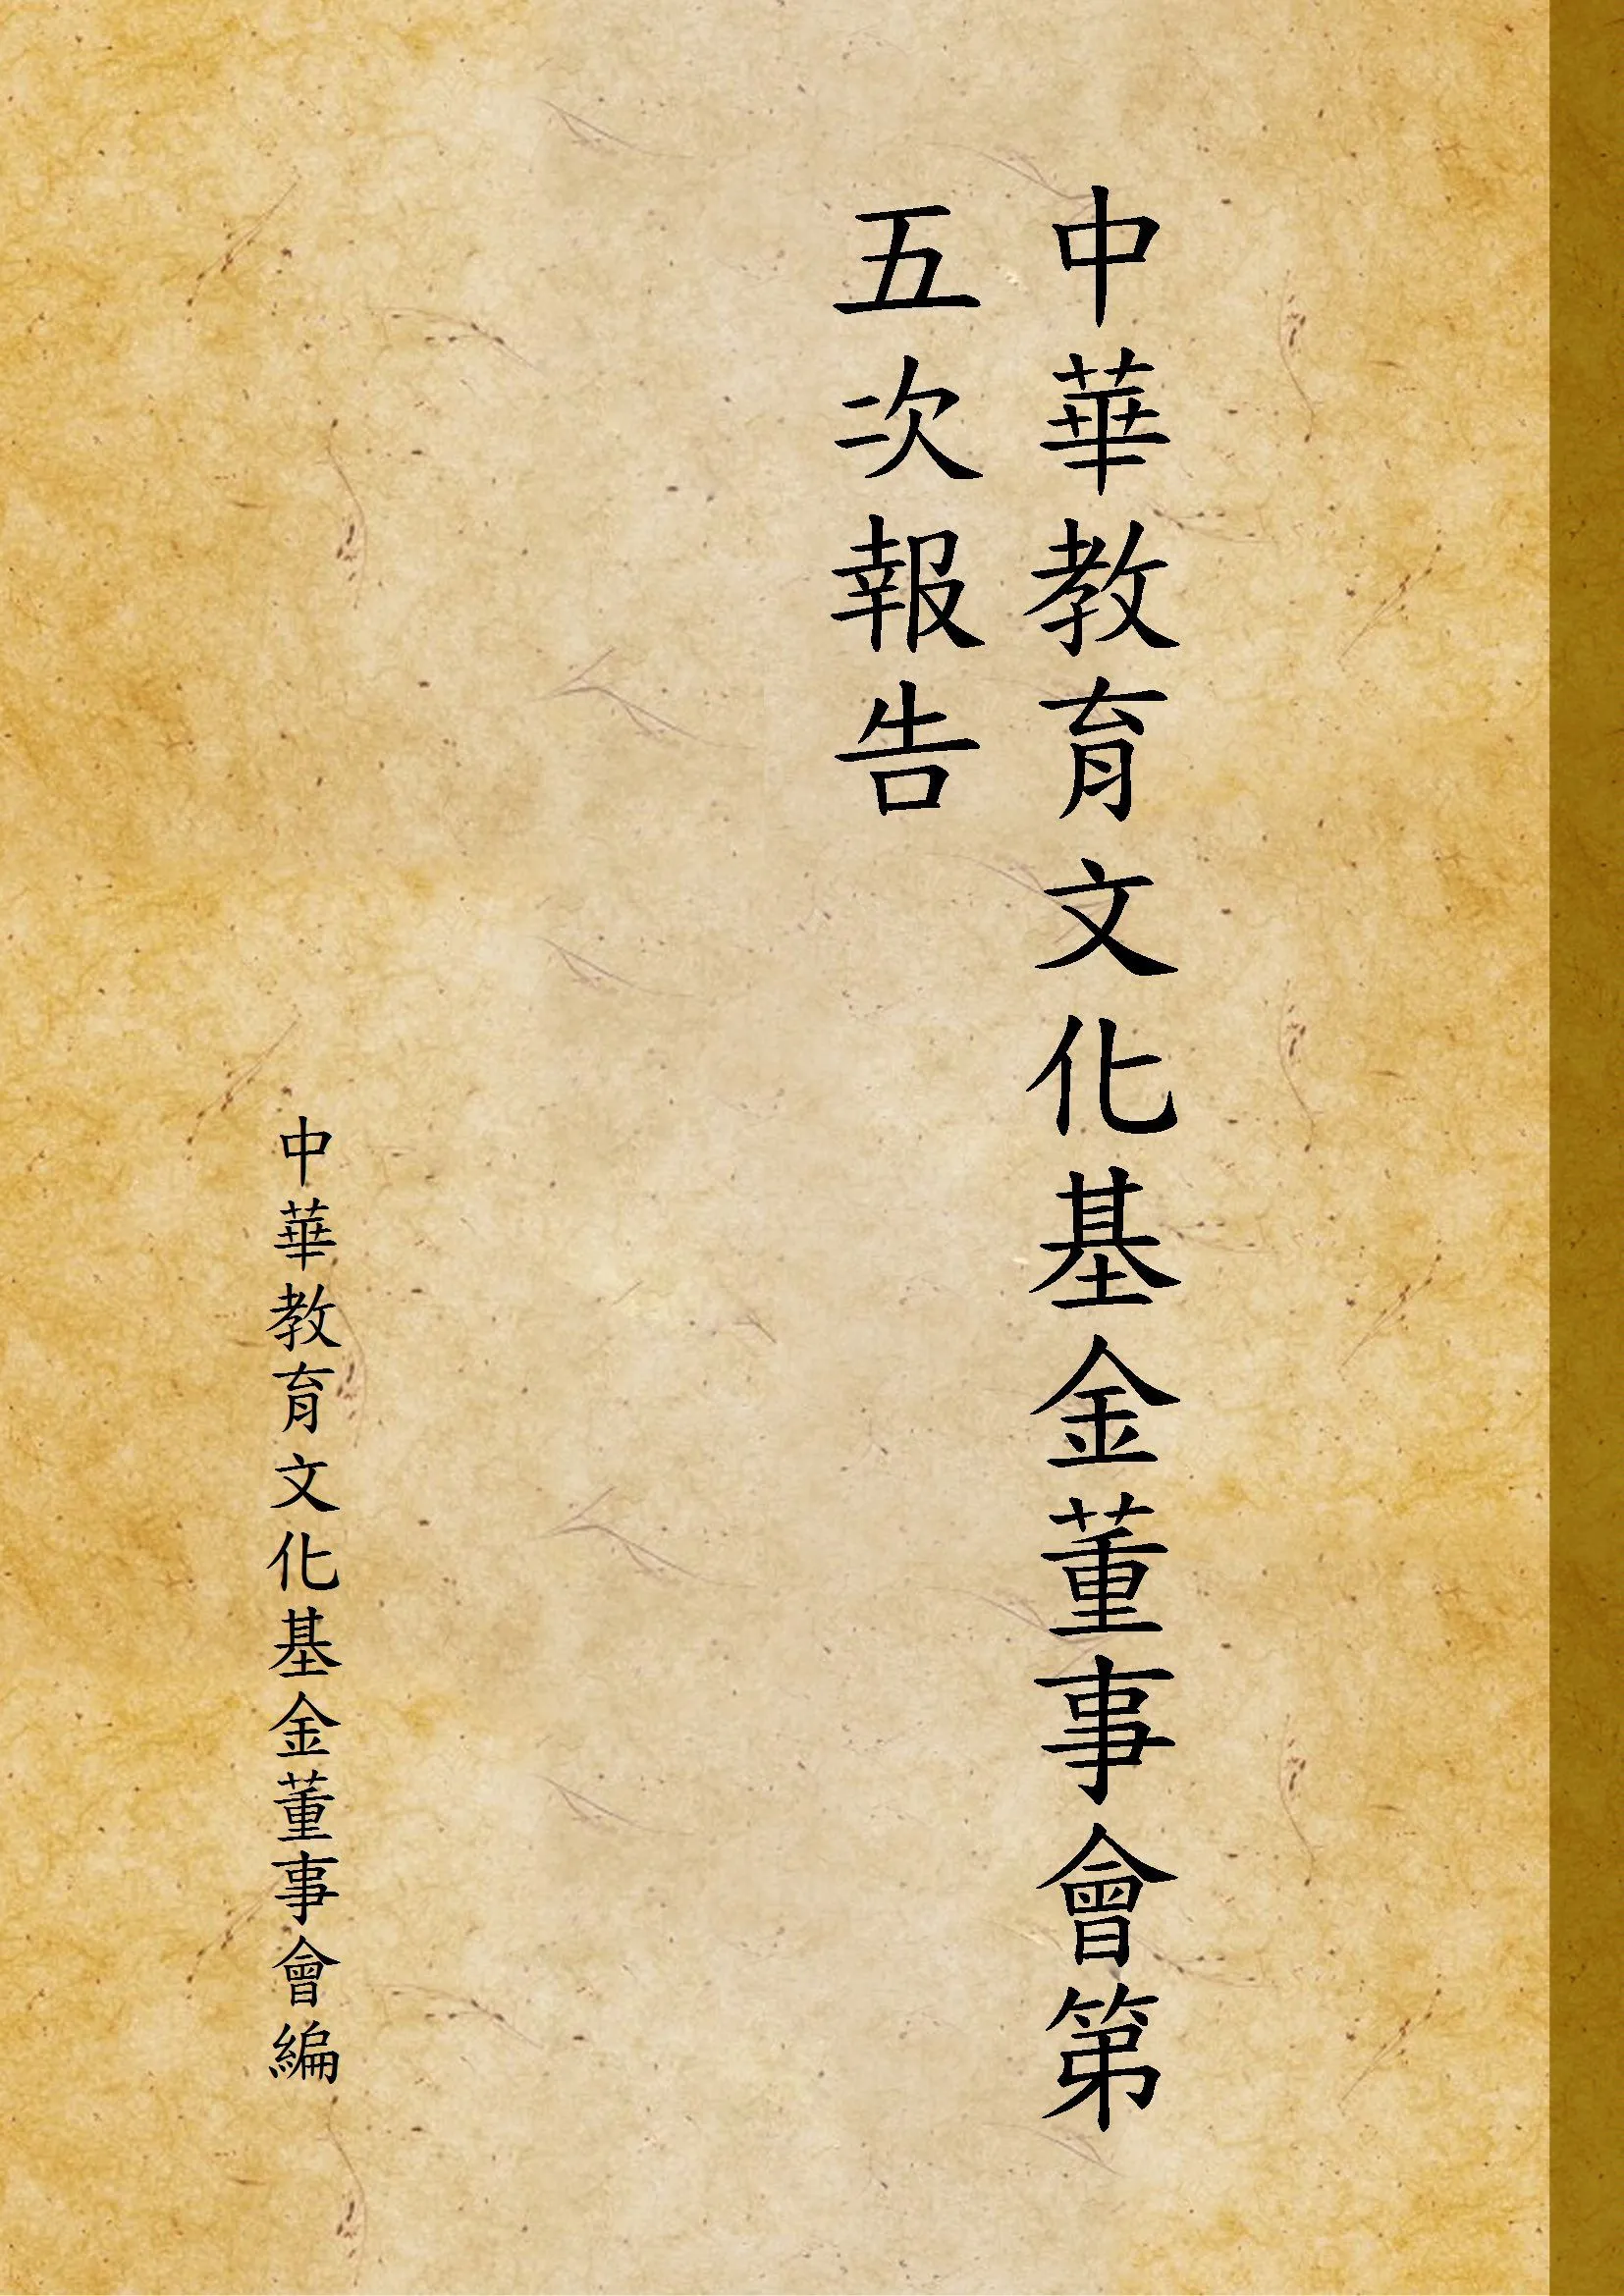 中華教育文化基金董事會第
五次報告
中華教育文化基金董事會編